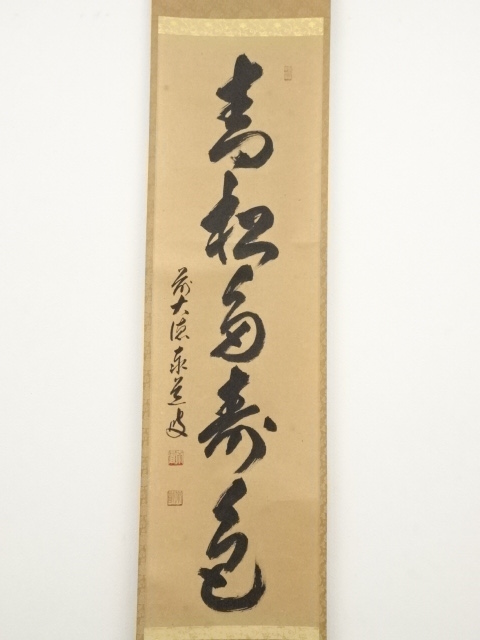 青松多寿色
前大徳泰道叟